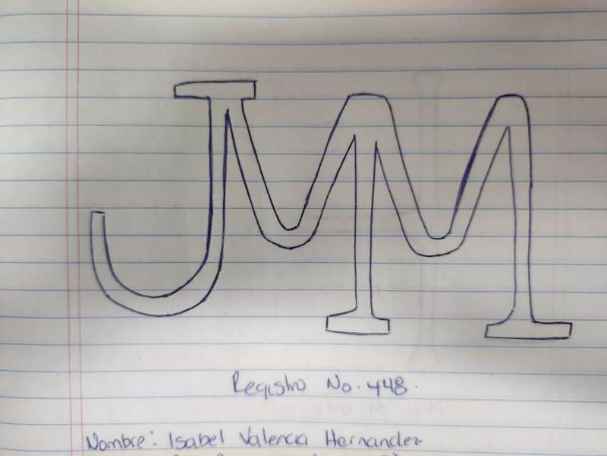 JMM
Registro No. 448.
Nombre: Isabel Valencia Hernandez